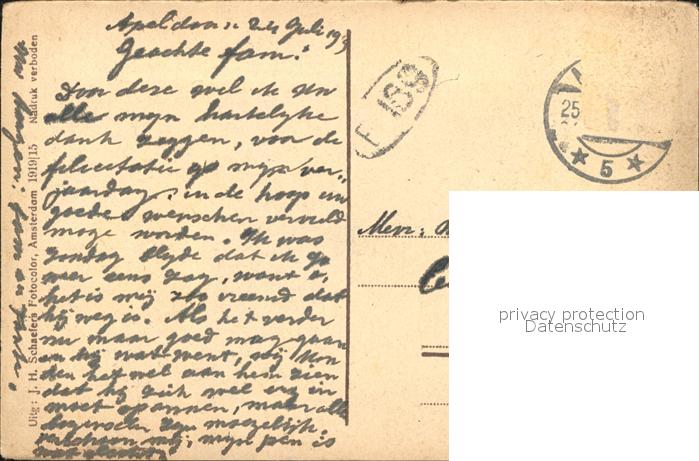 Apeldoorn 24 Juli 19
Geachte fam.
Door deze wil ik Uw
alle mijn hartelijke
dank zeggen, voor de
felicitatie op mijn ver-
jaardag, in de hoop uw
goede wenschen vervuld
moge worden. Ik was
Zondag blyde dat ik U
weer eens zag, want o,
het is mij zoo vreemd dat
hij weg is. Als het verder
nu maar goed mag gaan
en hij wat went, wij kon
den het wel aan hem zien
dat hij zich wel erg in
moet spannen, maar alle
zijn moeilijk.
mij, mijn pen is
wat
fam en
Uitg: J. H. Schaefers Fotocolor, Amsterdam 1919|15 Nadruk verboden
F 189
25
5
Mevr:
privacy protection
Datenschutz